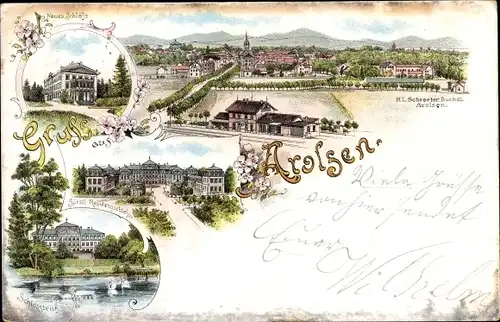 Neues Schloß
Gruß
aus
Arolsen.
H.L. Schroeter, Buchdl.
Arolsen.
Fürstl. Residenzschloß
Schlossteich
Viele Grüße
von hier sendet
Euer
Wilhelm